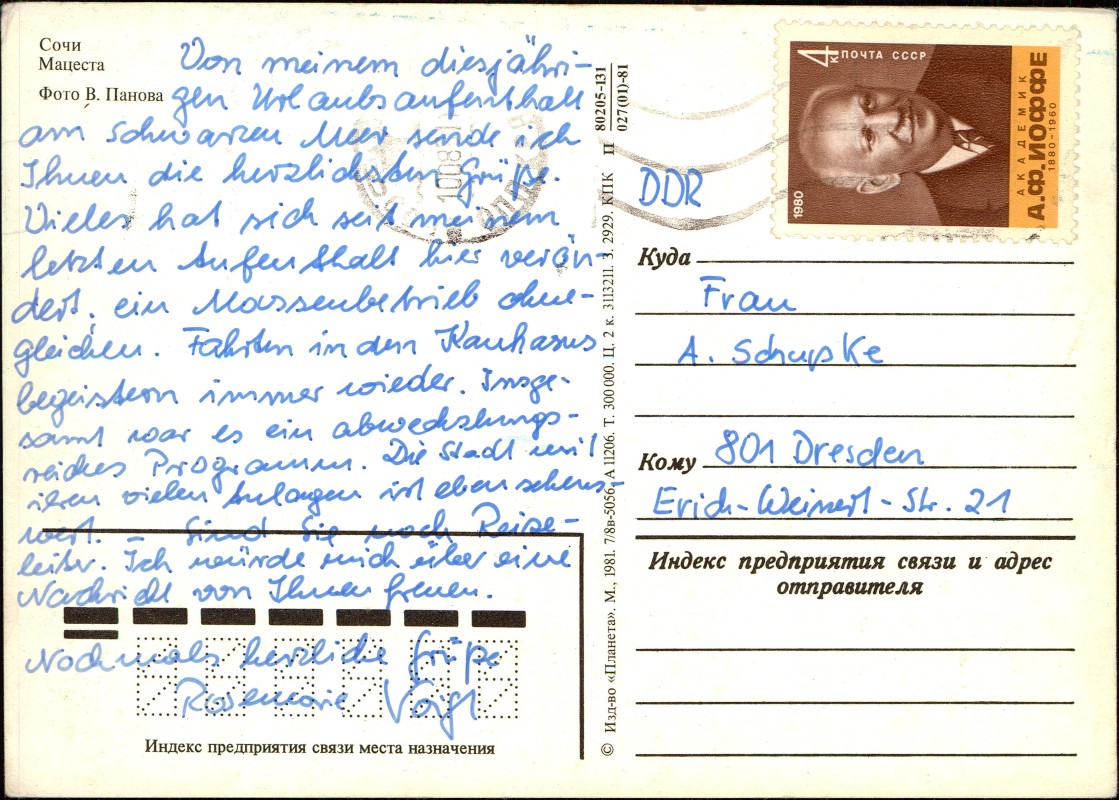 Сочи
Мацеста
Фото В. Панова
Von meinem diesjähri-
gen Urlaubsaufenthalt
am Schwarzen Meer sende ich
Ihnen die herzlichsten Grüße.
Vieles hat sich seit meinem
letzten Aufenthalt hier verän-
dert, ein Massenbetrieb ohne-
gleichen. Fahrten in den Kaukasus
begeistern immer wieder. Insge-
samt war es ein abwechslungs-
reiches Programm. Die Stadt mit
ihren vielen Anlagen ist ebenso sehens-
wert. – Sind Sie noch Reise-
leiter. Ich würde mich über eine
Nachricht von Ihnen freuen.
Nochmals herzliche Grüße
Rosemarie Voigt
Индекс предприятия связи места назначения
© Изд-во «Планета». М., 1981. 7/8в-5056. А 11206. Т. 300 000. Ц. 2 к. 3113211. З. 2929. КПК П
80205-131
027(01)-81
4к ПОЧТА СССР
1980
АКАДЕМИК
А.Ф. ИОФФЕ
1880-1960
DDR
Куда
Frau
A. Schupke
Кому
801 Dresden
Erich-Weinert-Str. 21
Индекс предприятия связи и адрес
отправителя